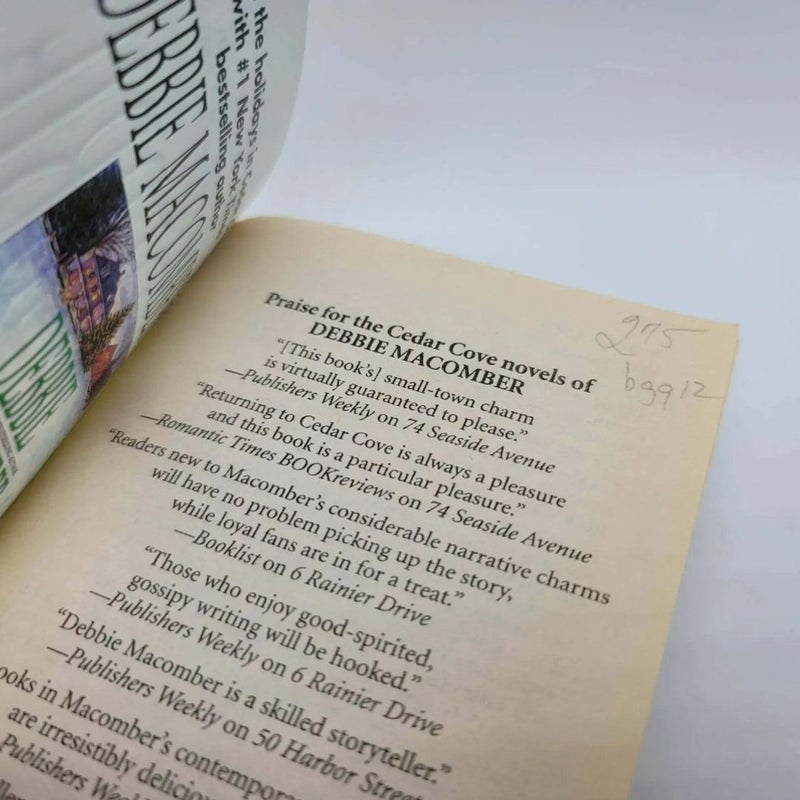 the holidays in
with #1 New York Times
bestselling author
DEBBIE MACOMBER
DEBBIE
275
bgg12
Praise for the Cedar Cove novels of
DEBBIE MACOMBER
“[This book’s] small-town charm
is virtually guaranteed to please.”
—Publishers Weekly on 74 Seaside Avenue
“Returning to Cedar Cove is always a pleasure
and this book is a particular pleasure.”
—Romantic Times BOOKreviews on 74 Seaside Avenue
“Readers new to Macomber’s considerable narrative charms
will have no problem picking up the story,
while loyal fans are in for a treat.”
—Booklist on 6 Rainier Drive
“Those who enjoy good-spirited,
gossipy writing will be hooked.”
—Publishers Weekly on 6 Rainier Drive
“Debbie Macomber is a skilled storyteller.”
—Publishers Weekly on 50 Harbor Street
ooks in Macomber’s contempora
are irresistibly delicio
Publishers Week